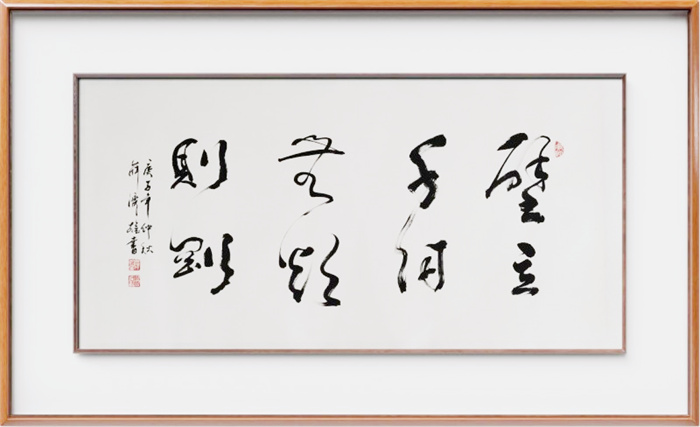 壁立
千仞
無欲
則剛
庚子年仲秋
書